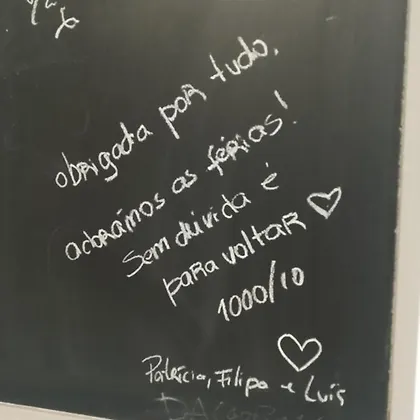 obrigada por tudo.
adorámos as férias!
Sem dúvida é
para voltar ♡
1000/10
♡
Patrícia, Filipa e Luís